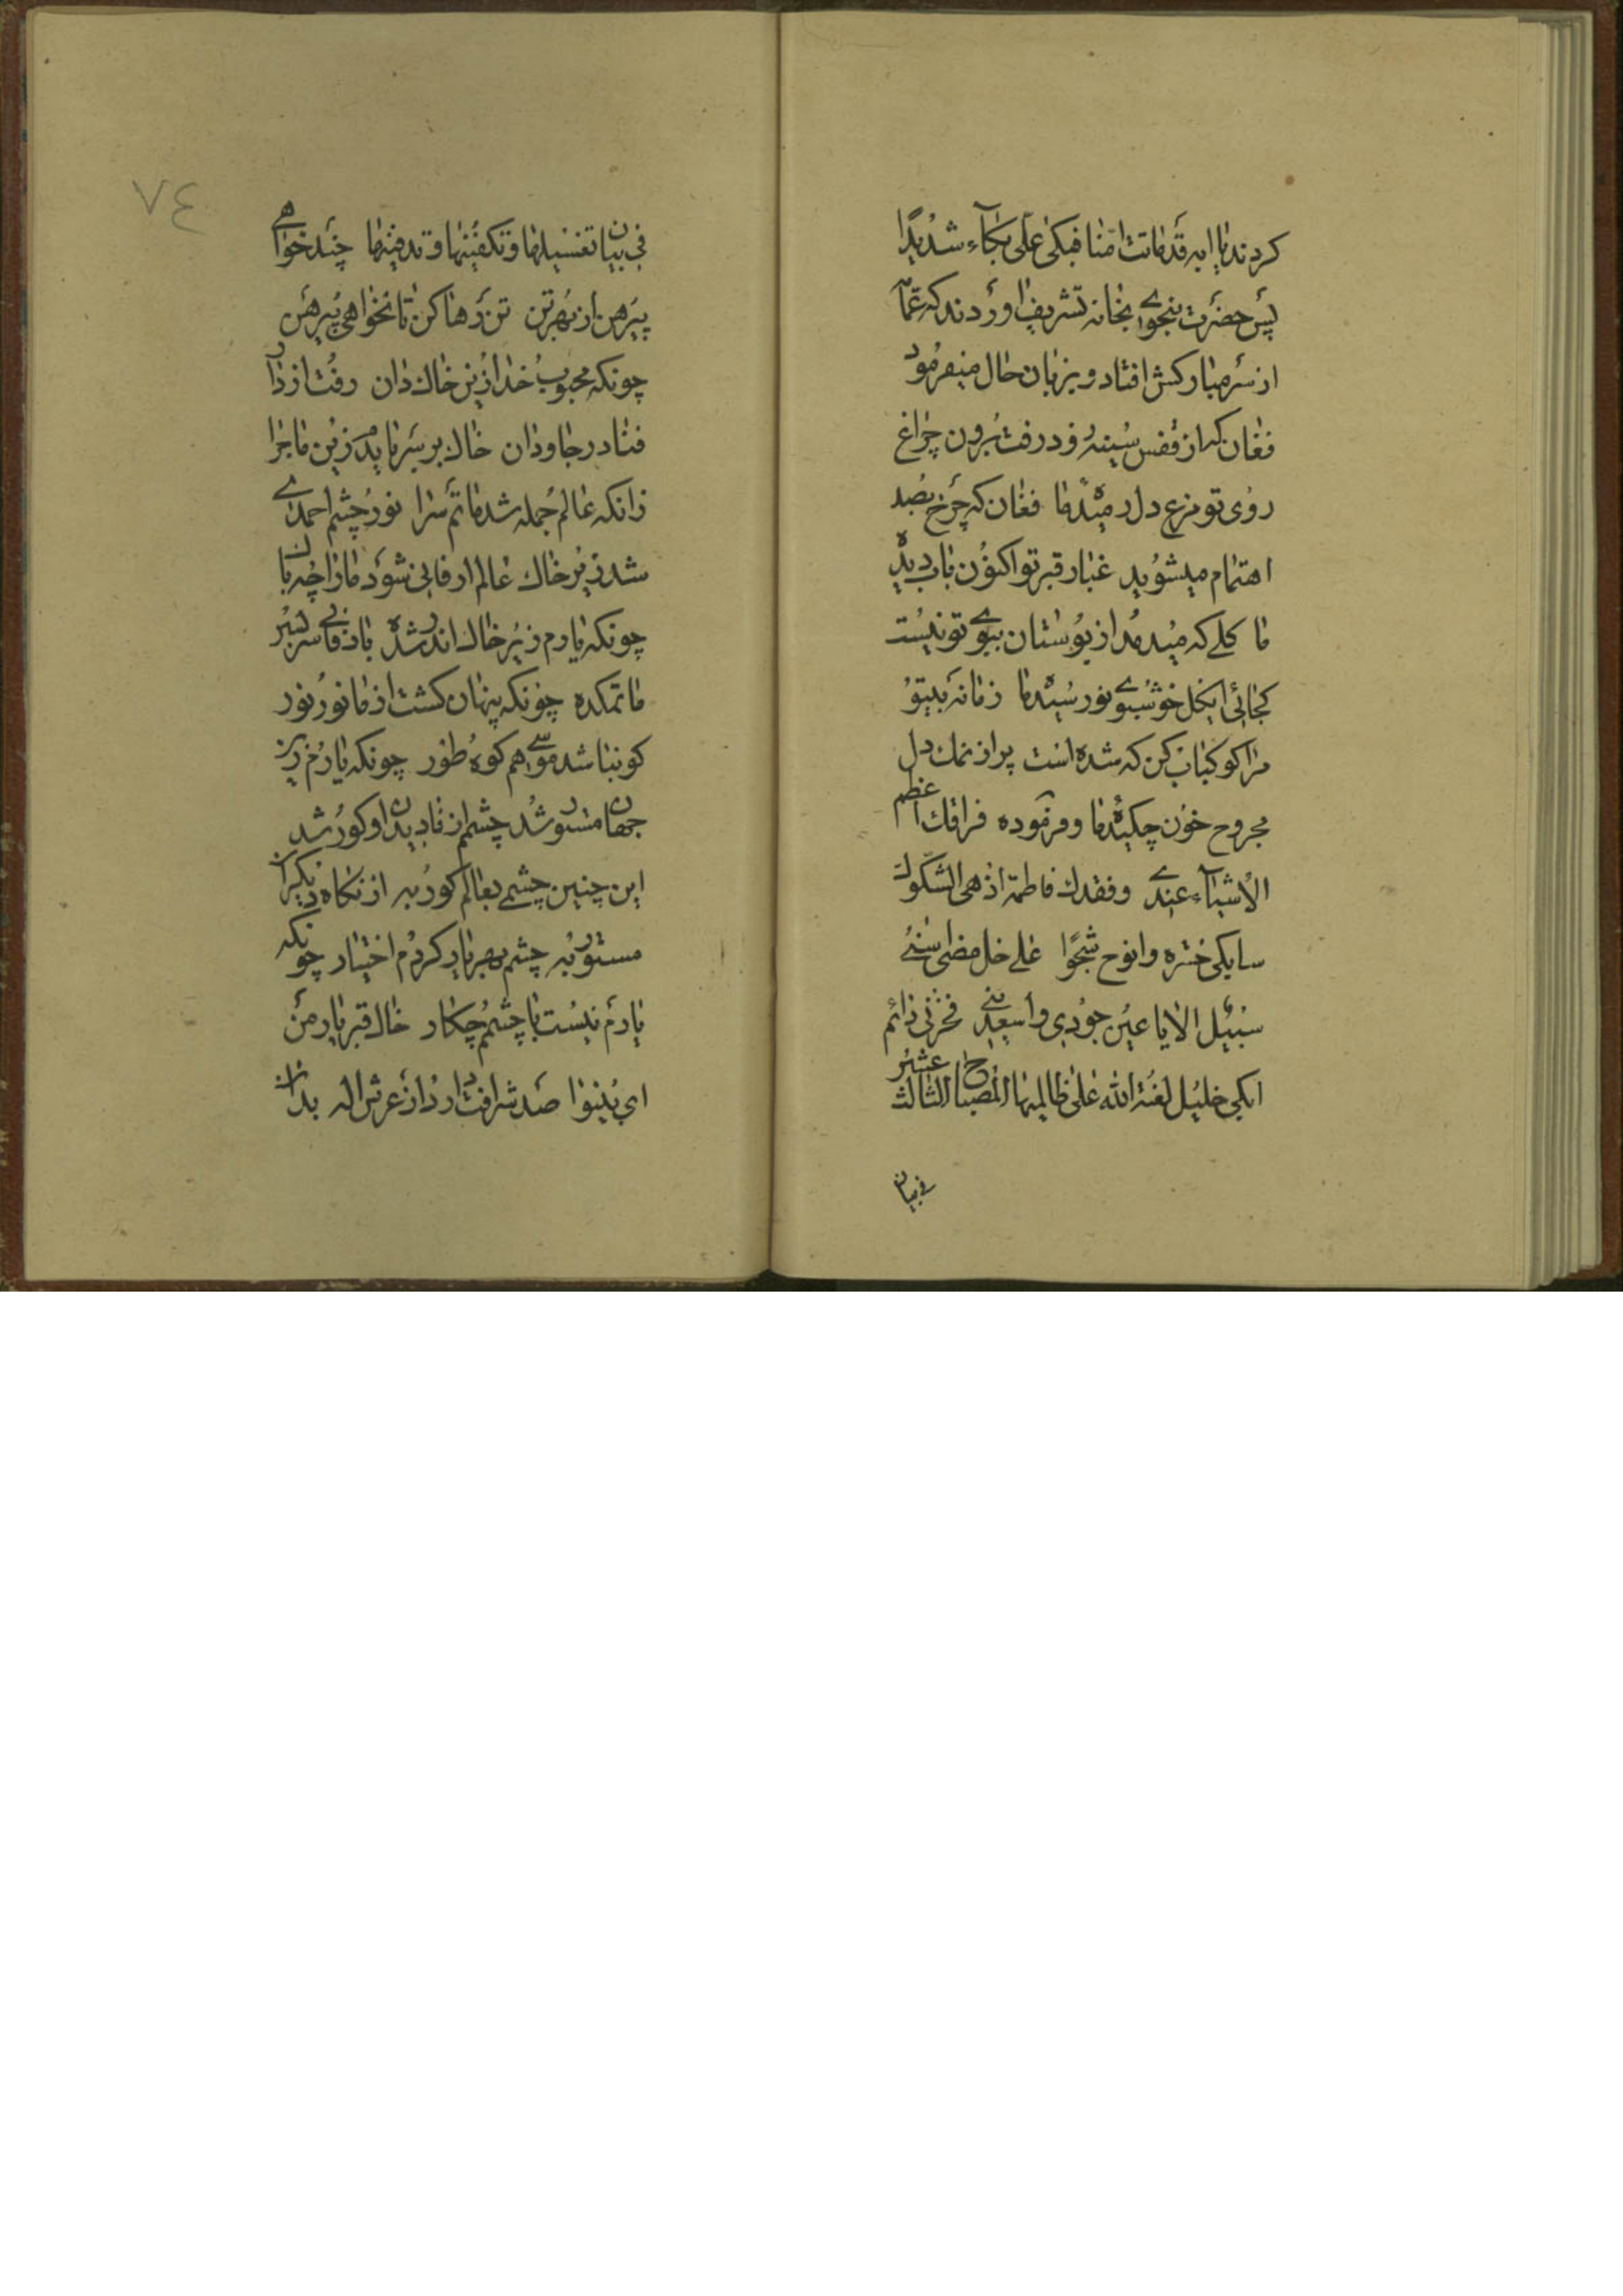 کردند یا ابه قد ماتت امنا فبکی علی بکآء شدیدا
پس حضرت بنحوی بخانه تشریف اوردند که عمامه
از سر مبارکش افتاد و بزبان حال میفرمود
فغان که از قفس سینه زود رفت برون چراغ
روی تو مرغ دل رمیدۀ ما فغان که چرخ بصد
اهتمام میشوید غبار قبر تو اکنون باب دیدۀ
ما کلی که میدمد از بوستان ببوی تو نیست
کجائی ایگل خوشبوی نورسیدۀ ما زمانه بیتو
مرا کو کباب کن که شده است پر از نمک دل
مجروح خون چکیدۀ ما و فرموده فراقک اعظم
الاشیآء عندی وفقدک فاطمة اذهی الشکول
سابکی حسرة وانوح شجوا علی خل مضی اسنی
سبیل الا یا عین جودی واسعدینی فحزنی دائم
ابکی خلیل لعنة الله علی ظالمیها المصباح الثالث عشر
فی بیان
٧٤
فی بیان تغسیلها وتکفینها وتدفینها چند خواهی
پیرهن از بهر تن تن رها کن تا نخواهی پیرهن
چونکه محبوب خدا زین خاک دان رفت از دار
فنا در جاودان خاک بر سر باید زین ماجرا
زانکه عالم جمله شد ماتم سرا نور چشم احمدی
شد زیر خاک عالم ار فانی شود ما را چه باک
چونکه یارم زیر خاک اندر شده باد فانی سر بسر
ماتمکده چونکه پنهان کشت از ما نور نور
کو نباشد موسی هم کوه طور چونکه یارم زین
جهان مستور شد چشم از نادیدن او کور شد
این چنین چشمی بعالم کور به از نکاه دیکران
مستور به چشم بهر یار کردم اختیار چونکه
یارم نیست با چشمم چکار خاک قبر یار من
ای نینوا صد شرافت دارد از عرش اله بدان